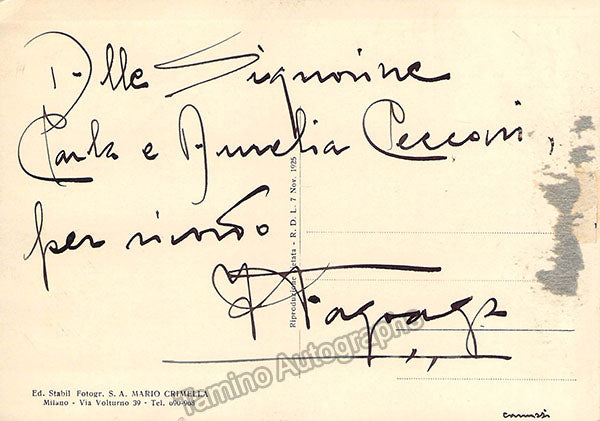 Alle Signorine
Carla e Aurelia Cecconi,
per ricordo
I Fagoaga
Riproduzione vietata - R. D. L. 7 Nov. 1925
Tamino Autographs
Ed. Stabil Fotogr. S. A. MARIO CRIMELLA
Milano - Via Volturno 39 - Tel. 690-968